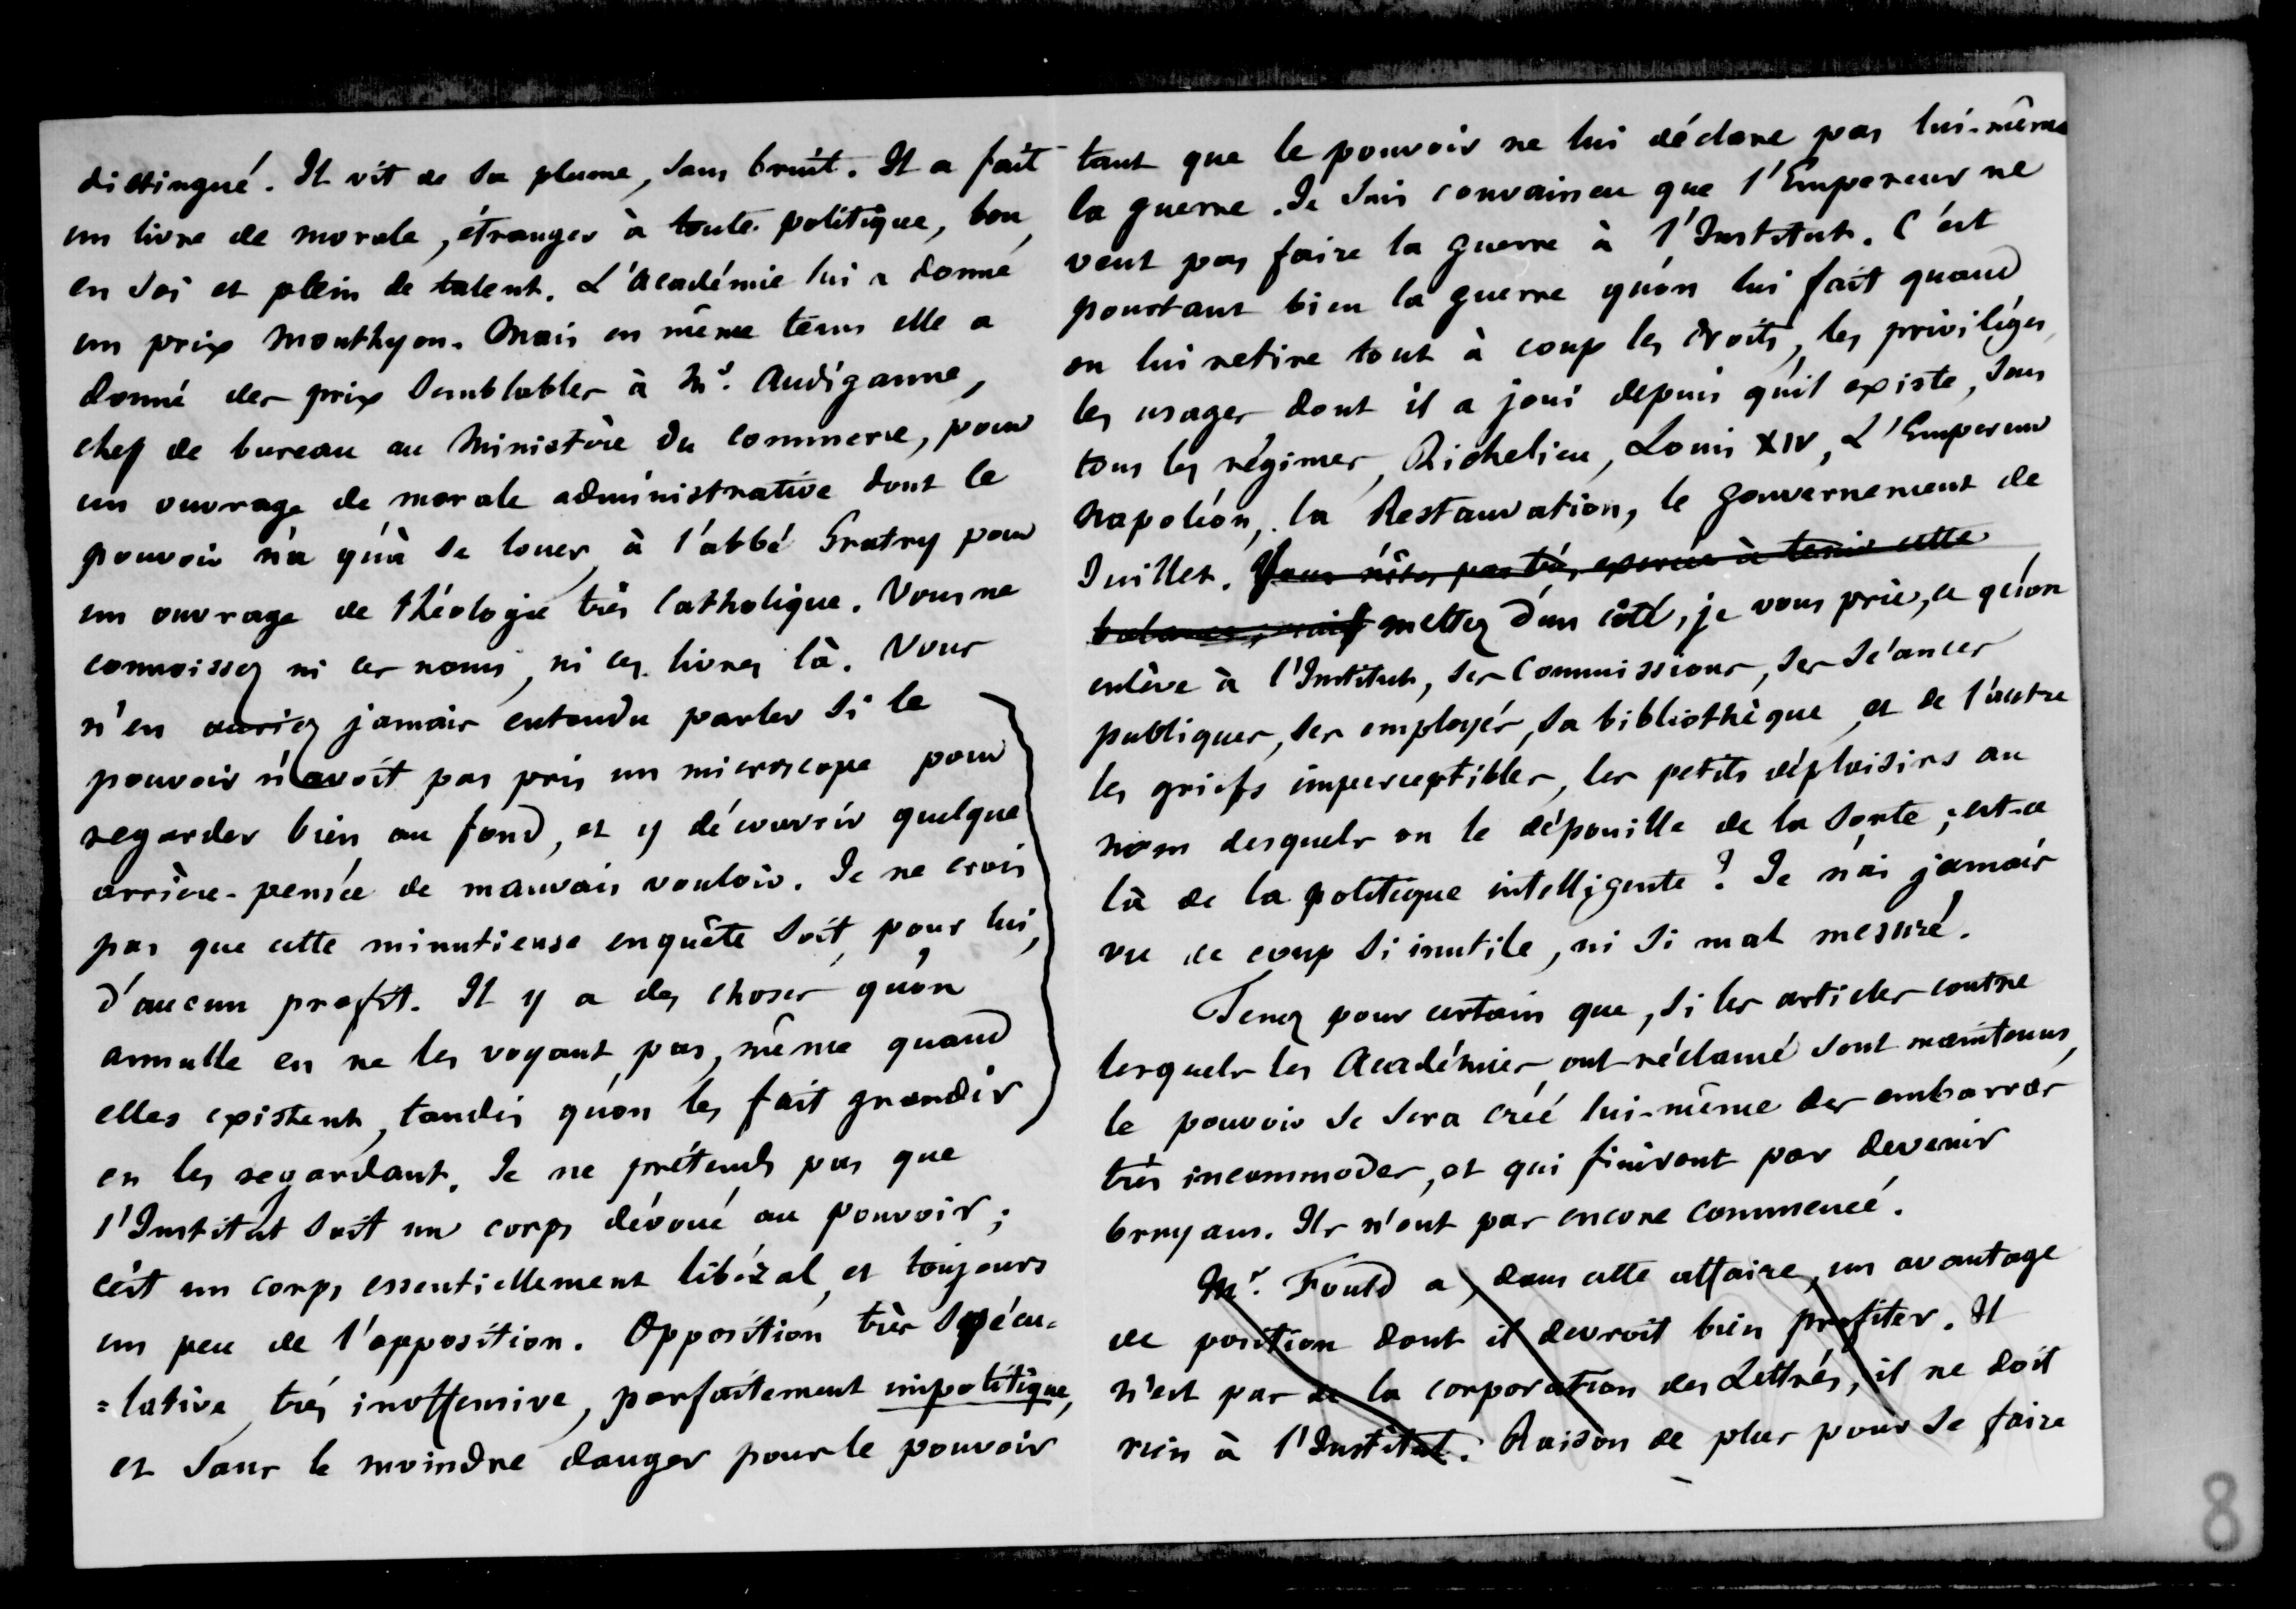 distingué. Il vit de sa plume, sans bruit. Il a fait
un livre de morale, étranger à toute politique, bon
en soi et plein de talent. L'Académie lui a donné
un prix Monthyon. Mais en même tems elle a
donné des prix semblables à Mr. Audiganne,
chef de bureau au Ministère du commerce, pour
un ouvrage de morale administrative dont le
pouvoir n'a qu'à se louer, à l'abbé Gratry pour
un ouvrage de théologie très catholique. Vous ne
connoissez ni ces noms, ni ces livres là. Vous
n'en auriez jamais entendu parler si le
pouvoir n'avoit pas pris un microscope pour
regarder bien au fond, et y découvrir quelque
arrière-pensée de mauvais vouloir. Je ne crois
pas que cette minutieuse enquête soit, pour lui,
d'aucun profit. Il y a des choses qu'on
annulle en ne les voyant pas, même quand
elles existent, tandis qu'on les fait grandir
en les regardant. Je ne prétends pas que
l'Institut soit un corps dévoué au pouvoir;
c'est un corps essentiellement libéral, et toujours
un peu de l'opposition. Opposition très spécu=
=lative, très inoffensive, parfaitement impolitique,
et sans le moindre danger pour le pouvoir
tant que le pouvoir ne lui déclare pas lui-même
la guerre. Je suis convaincu que l'Empereur ne
veut pas faire la guerre à l'Institut. C'est
pourtant bien la guerre qu'on lui fait quand
on lui retire tout à coup les droits, les privilèges,
les usages dont il a joui depuis qu'il existe, sous
tous les régimes, Richelieu, Louis XIV, L'Empereur
Napoléon, la Restauration, le gouvernement de
Juillet. Vous n'êtes pas très exercée à tenir cette
balance; mais mettez d'un côté, je vous prie, ce qu'on
enlève à l'Institut, ses commissions, ses séances
publiques, ses employés, sa bibliothèque, et de l'autre
les griefs imperceptibles, les petits déplaisirs au
nom desquels on le dépouille de la sorte; est-ce
là de la politique intelligente? Je n'ai jamais
vu de coup si inutile, ni si mal mesuré.
Tenez pour certain que, si les articles contre
lesquels les Académies ont réclamé sont maintenus,
le pouvoir se sera créé lui-même des embarras
très incommodes, et qui finiront par devenir
bruyans. Ils n'ont pas encore commencé.
Mr. Fould a, dans cette affaire, un avantage
de position dont il devroit bien profiter. Il
n'est pas de la corporation des Lettrés, il ne doit
rien à l'Institut. Raison de plus pour se faire
8